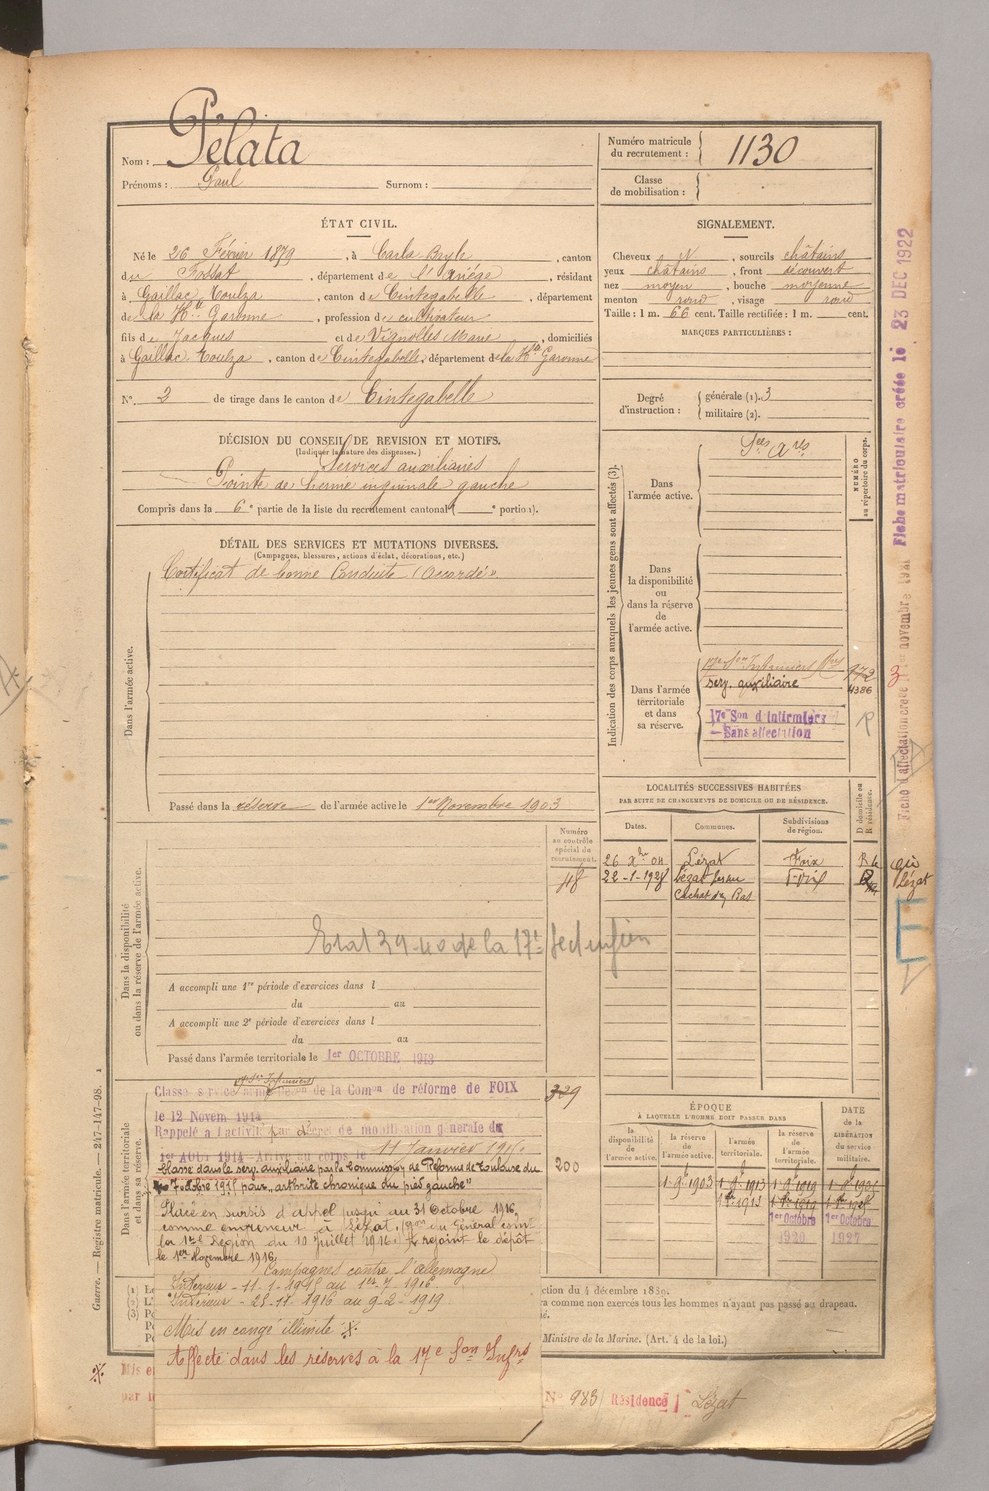 Nom : Pélata
Prénoms : Paul Surnom :
Numéro matricule du recrutement : 1130
Classe de mobilisation :
ÉTAT CIVIL.
Né le 26 Février 1879, à Carla Bayle, canton
du Fossat, département de l'Ariège, résidant
à Gaillac Toulza, canton de Cintegabelle, département
de la Hte Garonne, profession de cultivateur
fils de Jacques et de Vignolles Marie, domiciliés
à Gaillac Toulza, canton de Cintegabelle, département de la Hte Garonne
N° 2 de tirage dans le canton de Cintegabelle
SIGNALEMENT.
Cheveux, sourcils châtains
yeux châtains, front découvert
nez moyen, bouche moyenne
menton rond, visage rond
Taille : 1 m. 66 cent. Taille rectifiée : 1 m. cent.
MARQUES PARTICULIÈRES :
Degré d'instruction : générale (1). 3
militaire (2).
DÉCISION DU CONSEIL DE REVISION ET MOTIFS.
(Indiquer la nature des dispenses.)
Services auxiliaires
Pointe de hernie inguinale gauche
Compris dans la 6e partie de la liste du recrutement cantonal ( e portion).
DÉTAIL DES SERVICES ET MUTATIONS DIVERSES.
(Campagnes, blessures, actions d'éclat, décorations, etc.)
Dans l'armée active.
Certificat de bonne Conduite "Accordé"
Passé dans la réserve de l'armée active le 1er Novembre 1903
Indication des corps auxquels les jeunes gens sont affectés (3).
NUMÉRO au répertoire du corps.
Dans l'armée active.
Dans la disponibilité ou dans la réserve de l'armée active.
Dans l'armée territoriale et dans sa réserve.
serv. auxiliaire
4386
17e Son d'infirmiers
Sans affectation
Fiche matriculaire créée le 23 DEC 1922
LOCALITÉS SUCCESSIVES HABITÉES
PAR SUITE DE CHANGEMENTS DE DOMICILE OU DE RÉSIDENCE.
Dates. Communes. Subdivisions de région. D domicile ou R résidence.
Lézat Foix
22-1-1928 Lézat Foix R
Dans la disponibilité ou dans la réserve de l'armée active.
Numéro au contrôle spécial du recrutement.
Etat 39-40 de la 17e
A accompli une 1re période d'exercices dans l
du au
A accompli une 2e période d'exercices dans l
du au
Passé dans l'armée territoriale le 1er OCTOBRE 1913
Dans l'armée territoriale et dans sa réserve.
Classé service armé de la Comon de réforme de FOIX
le 12 Novem 1914
Rappelé à l'activité par décret de mobilisation générale du
1er AOUT 1914 - Arrivé au corps le 11 Janvier
Classé dans le serv. auxiliaire par la Commission de Réforme de Toulouse du
7 octobre 1915 pour "arthrite chronique du pied gauche"
Placé en sursis d'appel jusqu'au 31 Octobre 1916,
à Lézat, du Général
Région du 10 Juillet 1916. rejoint le dépôt
le 1er Novembre 1916
Campagnes contre l'allemagne
Intérieur - 11-1-1915 au 1er-7-1916
Intérieur - 1916 au 9-2-1919
Mis en congé illimité
Affecté dans les réserves à la 17e Son Infrs
339
200
ÉPOQUE
À LAQUELLE L'HOMME DOIT PASSER DANS
la disponibilité de l'armée active. la réserve de l'armée active. l'armée territoriale. la réserve de l'armée territoriale.
DATE de la LIBÉRATION du service militaire.
1er Octobre 1er Octobre
1927
ction du 4 décembre 1889.
ra comme non exercés tous les hommes n'ayant pas passé au drapeau.
Ministre de la Marine. (Art. 4 de la loi.)
Mis e
N° 983 Résidence Lézat
Guerre. — Registre matricule. — 247-147-98.